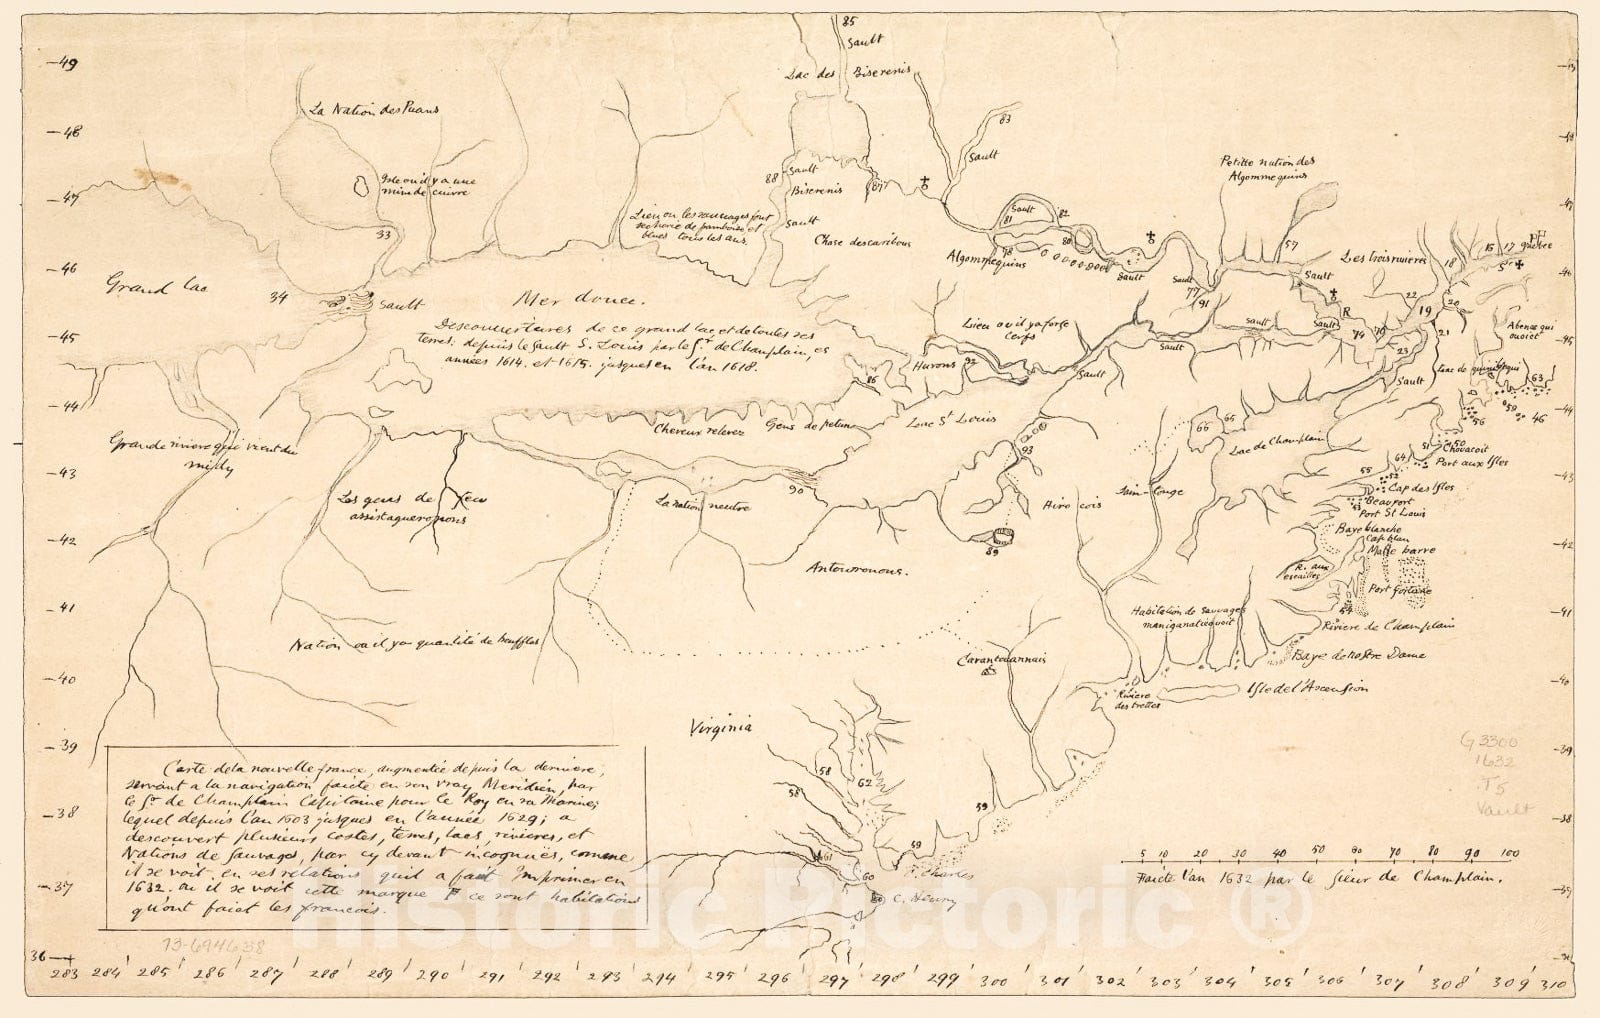 85
Sault
Lac des Biserenis
49
La Nation des Puans
83
48
Sault
Petitte nation des
Algommequins
Isle ou il y a une
mine de cuivre
88
Sault
Biserenis
87
47
Sault
81
82
Lieu ou les sauvages font
secherie de framboise, et
blues tous les ans.
Sault
Chase des caribous
33
78
80
Algommequins
57
15
17
Quebec
Les trois rivieres
18
46
Sault
Sault
Sault
Grand lac
34
Sault
Mer douce.
77
91
22
20
R
19
Descouvertures de ce grand lac, et de toutes ses
terres, depuis le sault S. Louis par le Sr. de Champlain, es
années 1614. et 1615. jusques en l'an 1618.
Lieu ou il y a force
Cerfs
Sault
Sault
74
21
Abenaqui
45
Sault
23
Hurons
92
86
Sault
Sault
63
59
46
56
44
Cheveux relevez
Gens de petun
Lac St Louis
65
66
Lac de Champlain
Grande riviere qui vient du
midy
93
51
50
Chouacoit
64
Port aux Isles
43
55
52
Cap des Isles
Les gens de feu
assistagueronons
La nation neutre
90
Hirocois
Beauport
53
Port St Louis
42
Baye blanche
Cap blan
Malle barre
89
Antouoronons.
R. aux
escailles
Port fortuné
41
Habitation de sauvages
54
Riviere de Champlain
Nation ou il y a quantité de beuffles
Carantouannais
Baye de nostre Dame
40
Riviere
des trettes
Isle de l'Ascension
Virginia
39
G3300
1632
.T5
Vault
Carte de la nouvelle france, augmentée depuis la derniere,
servant a la navigation faicte en son vray Meridien, par
le Sr. de Champlain Capitaine pour le Roy en sa Marine;
lequel depuis l'an 1603 jusques en l'année 1629; a
descouvert plusieurs costes, terres, lacs, rivieres, et
Nations de sauvages, par cy devant incognuës, comme
il se voit en ses relations quil a fait Imprimer en
1632. ou il se voit cette marque ce sont habitations
qu'ont faict les francois.
58
62
58
59
38
61
59
60
F. Charles
C. Henry
5 10 20 30 40 50 60 70 80 90 100
Faicte l'an 1632 par le Sieur de Champlain.
37
73-694638
Historic Pictoric ®
36
283 284 285 286 287 288 289 290 291 292 293 294 295 296 297 298 299 300 301 302 303 304 305 306 307 308 309 310